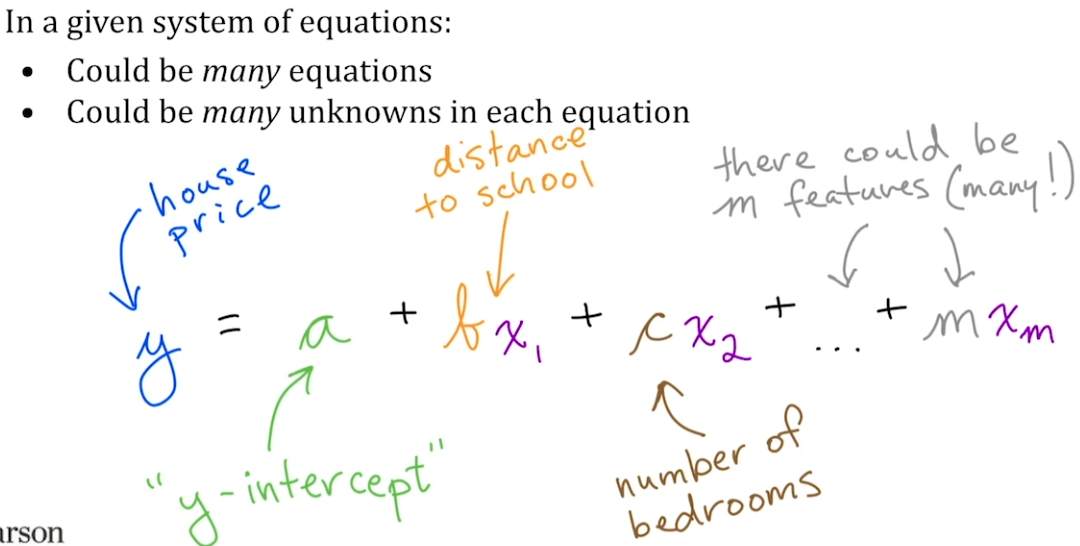 In a given system of equations:
• Could be many equations
• Could be many unknowns in each equation
house
price
distance
to school
there could be
m features (many!)
y = a + bx₁ + cx₂ + ... + mxₘ
"y-intercept"
number of
bedrooms
arson